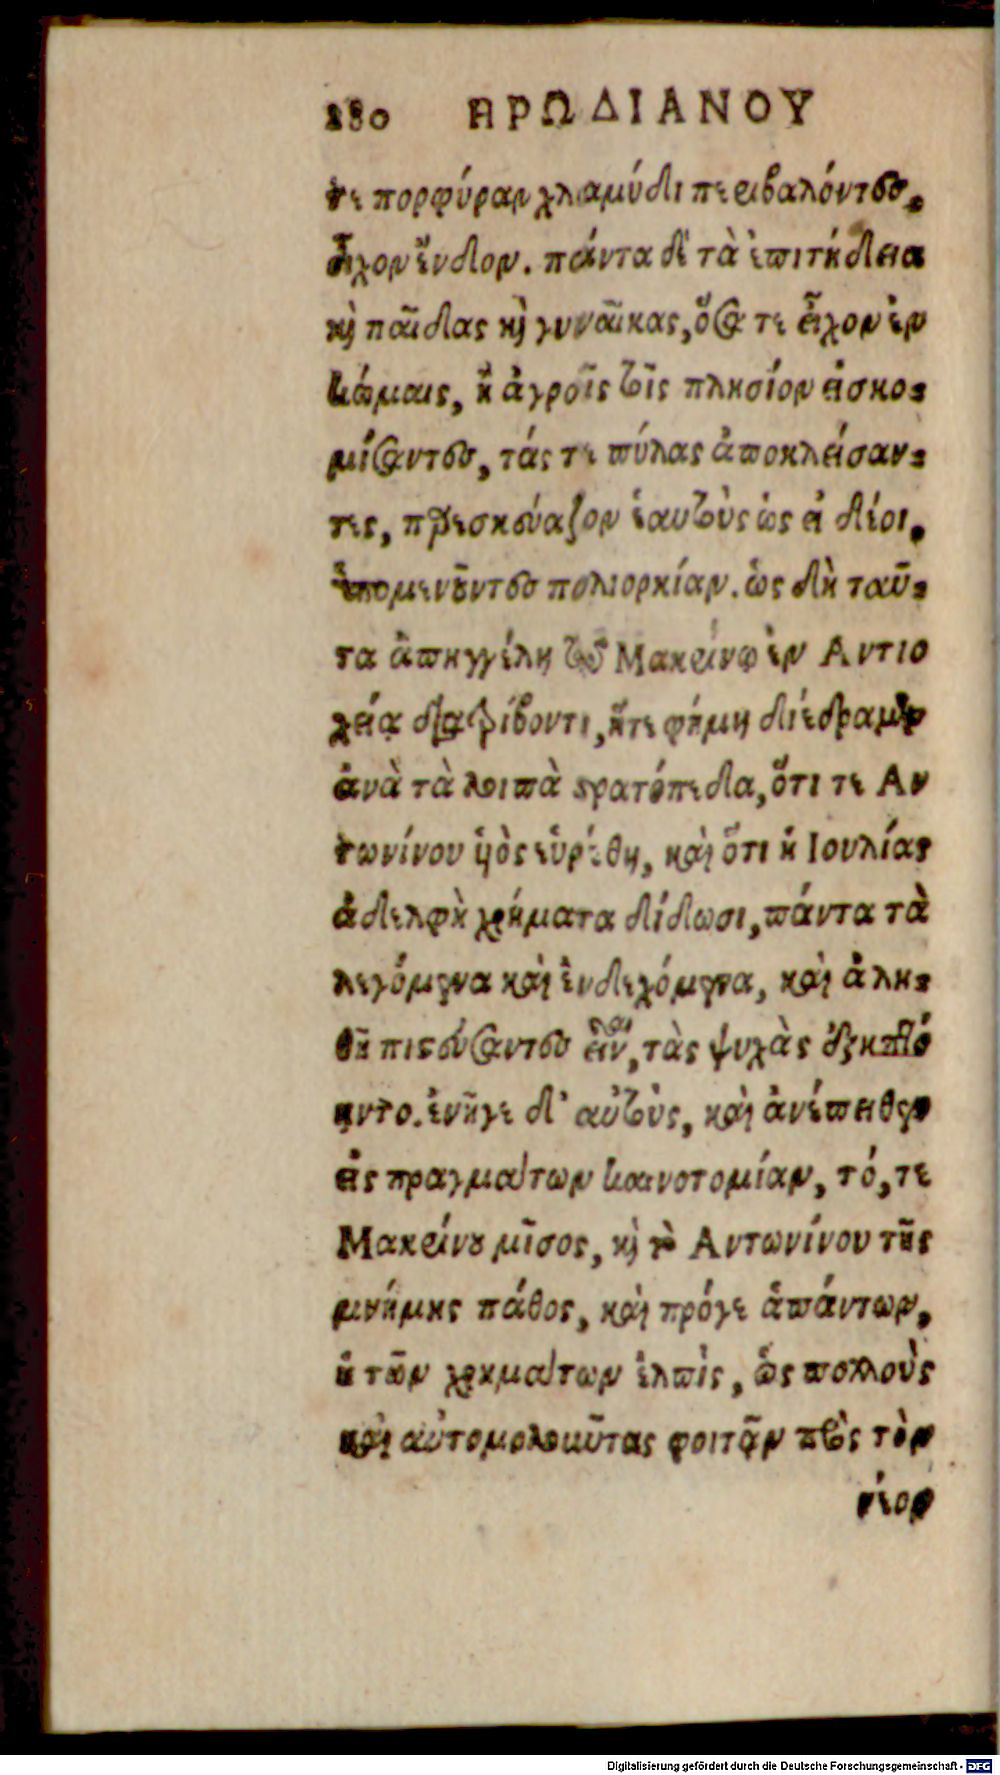 280 ΗΡΩΔΙΑΝΟΥ
τε πορφύραν χλαμύδι περιβαλόντες,
εἶχον ἔνδον. πάντα δὲ τὰ ἐπιτήδεια
καὶ παῖδας καὶ γυναῖκας, ὅσα τε εἶχον ἐν
κώμαις, ἢ ἀγροῖς τοῖς πλησίον εἰσκο-
μίσαντες, τάς τε πύλας ἀποκλείσαν-
τες, παρεσκεύαζον ἑαυτοὺς ὡς εἰ δέοι,
ὑπομενοῦντες πολιορκίαν. ὡς δὴ ταῦ-
τα ἀπηγγέλη τῷ Μακρίνῳ ἐν Αντιο
χείᾳ διατρίβοντι, ἥτε φήμη διέδραμεν
ἀνὰ τὰ λοιπὰ στρατόπεδα, ὅτι τε Αν
τωνίνου ὑὸς εὑρέθη, καὶ ὅτι ἡ Ιουλίας
ἀδελφὴ χρήματα δίδωσι, πάντα τὰ
λεγόμενα καὶ ἐνδεχόμενα, καὶ ἀλη-
θῆ πιστεύσαντες εἶναι, τὰς ψυχὰς ἐξεπλή
ηντο. ἐνῆγε δ' αὐτοὺς, καὶ ἀνέπειθεν
εἰς πραγμάτων καινοτομίαν, τό, τε
Μακρίνου μῖσος, καὶ τὸ Αντωνίνου τῆς
μνήμης πάθος, καὶ πρόγε ἁπάντων,
ἡ τῶν χρημάτων ἐλπὶς, ὡς πολλοὺς
καὶ αὐτομολοῦντας φοιτᾷν πρὸς τὸν
νέον
Digitalisierung gefördert durch die Deutsche Forschungsgemeinschaft - DFG